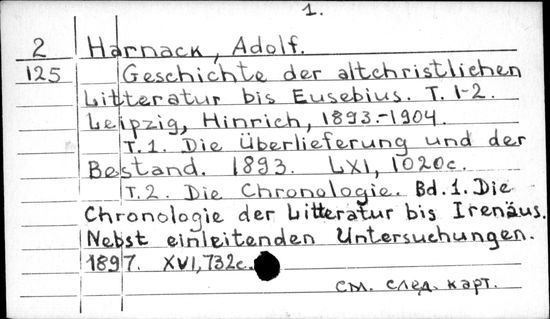 1.
2 Harnack, Adolf.
125 Geschichte der altchristlichen
Litteratur bis Eusebius. T. 1-2.
Leipzig, Hinrich, 1893.-1904.
T. 1. Die Überlieferung und der
Bestand. 1893. LXI, 1020с.
T. 2. Die Chronologie. Bd. 1. Die
Chronologie der Litteratur bis Irenäus.
Nebst einleitenden Untersuchungen.
1897. XVI, 732с.
см. след. карт.